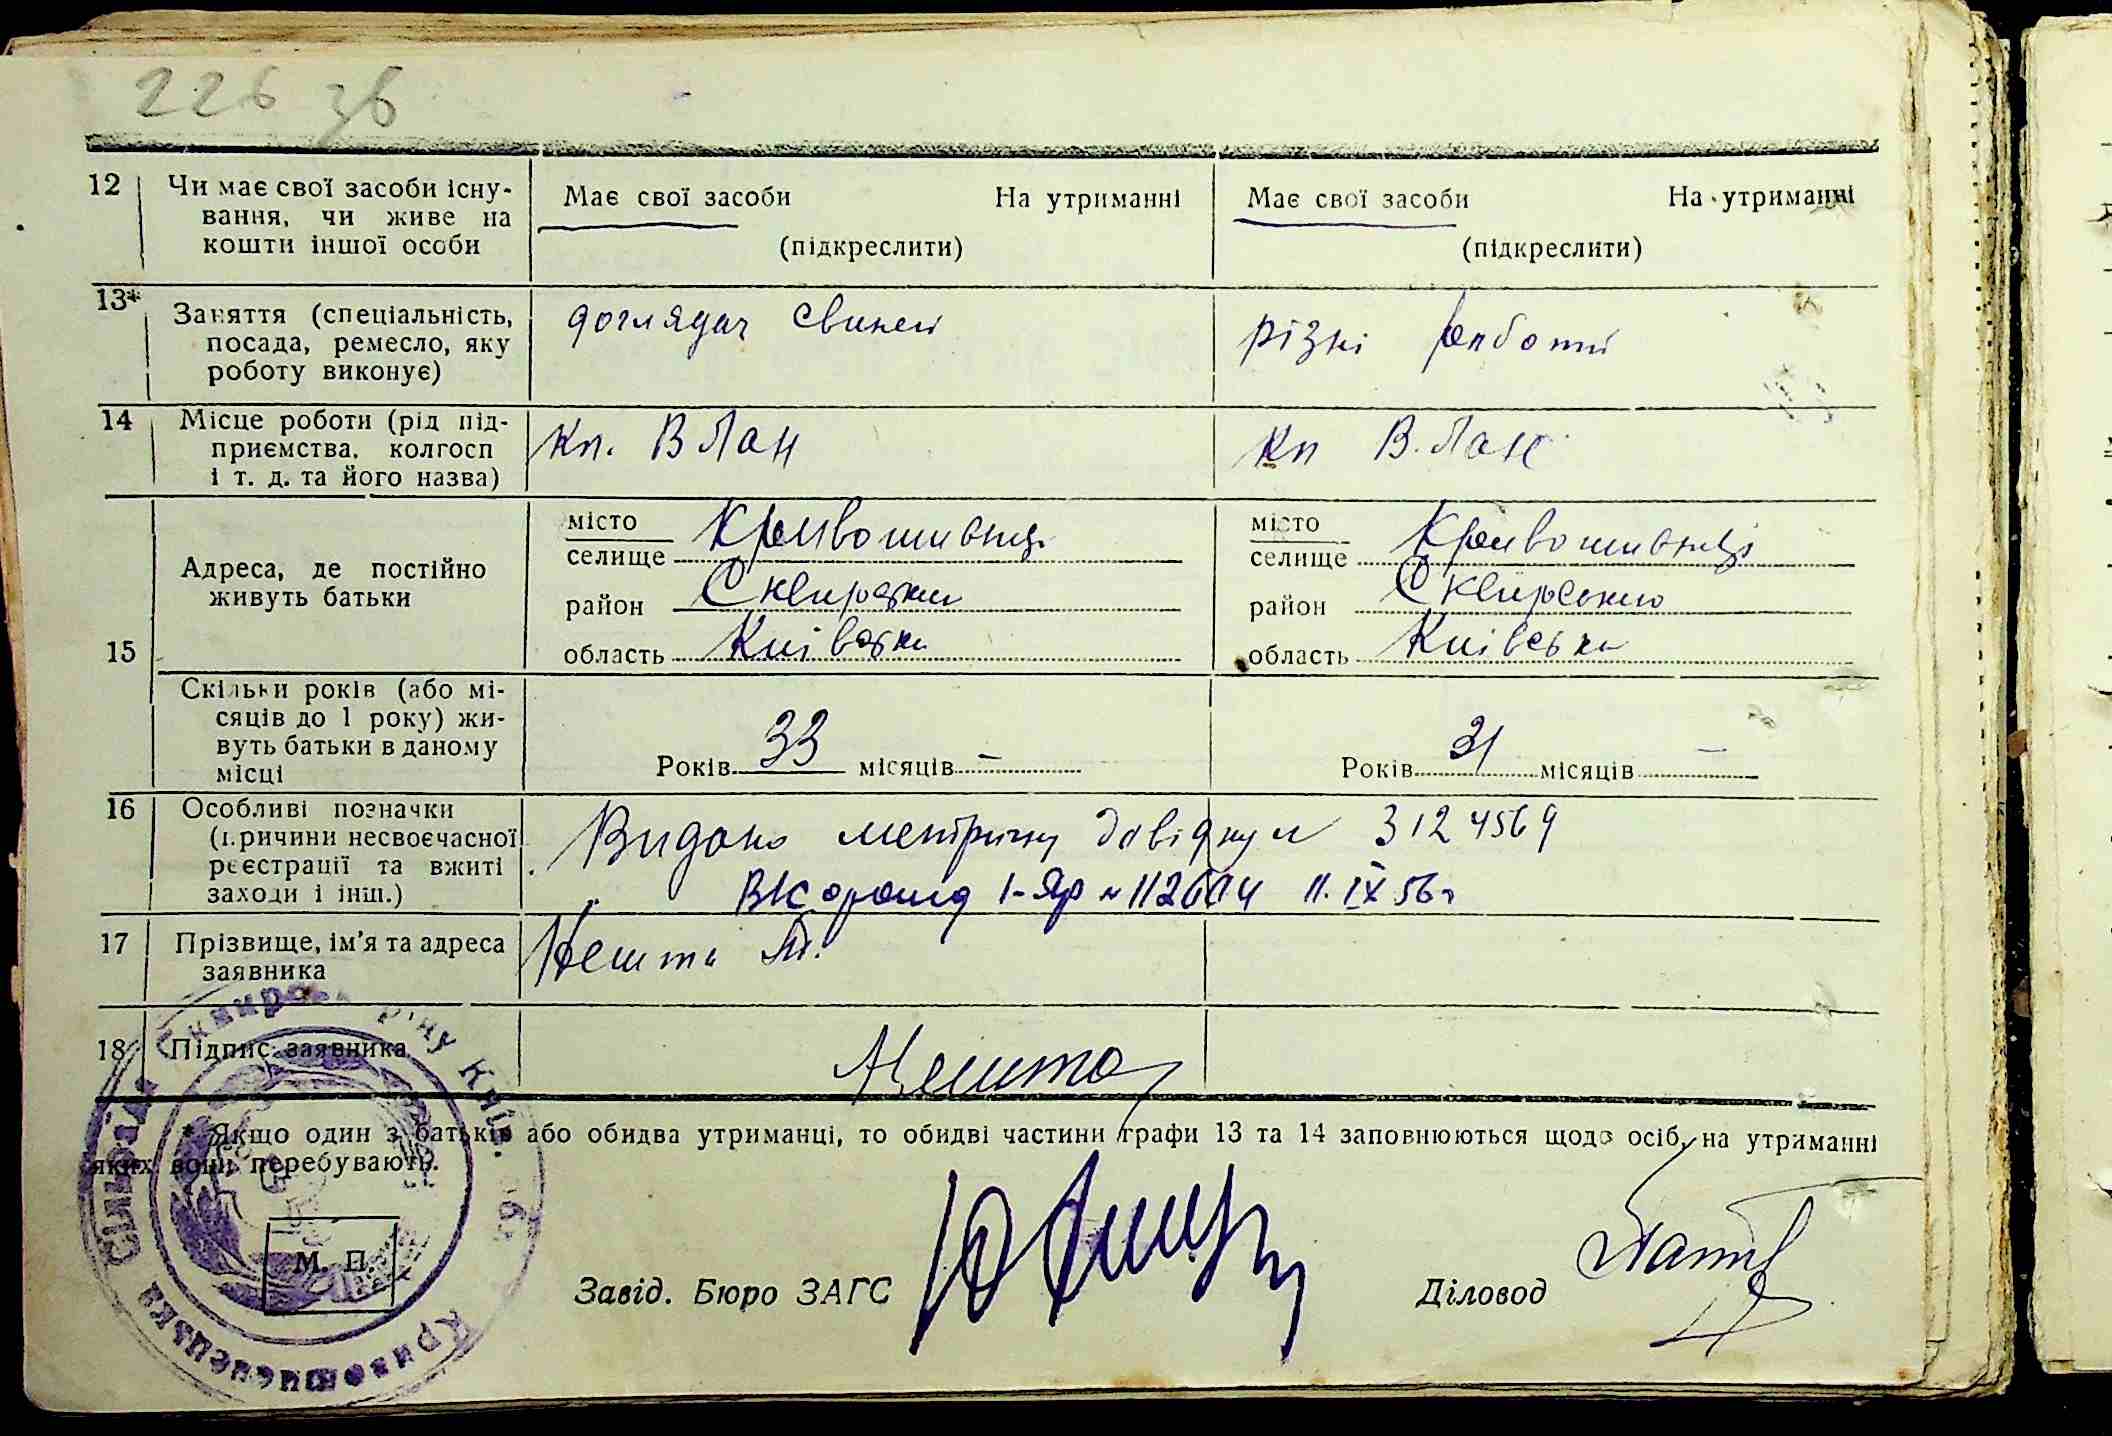 226 зв
12 Чи має свої засоби існу- Має свої засоби На утриманні Має свої засоби На утриманні
вання, чи живе на
кошти іншої особи (підкреслити) (підкреслити)
13* Заняття (спеціальність, доглядач свиней різні роботи
посада, ремесло, яку
роботу виконує)
14 Місце роботи (рід під- кп. В Лан кп В. Лан
приємства, колгосп
і т. д. та його назва)
15 Адреса, де постійно
живуть батьки
місто Кривошиєнці місто Кривошиєнці
селище селище
район Сквирський район Сквирського
область Київська область Київська
Скільки років (або мі-
сяців до 1 року) жи-
вуть батьки в даному
місці
Років 33 місяців – Років 31 місяців –
16 Особливі позначки
(причини несвоєчасної
реєстрації та вжиті
заходи і інш.)
Видано метричну довідку 3124569
I-Яр 11.IX 56г
17 Прізвище, ім'я та адреса Кешта
заявника
18 Підпис заявника Кешта
* Якщо один з батьків або обидва утриманці, то обидві частини графи 13 та 14 заповнюються щодо осіб, на утриманні
яких вони перебувають.
М. П.
Завід. Бюро ЗАГС Діловод
Кривошиєнецька Сільрада